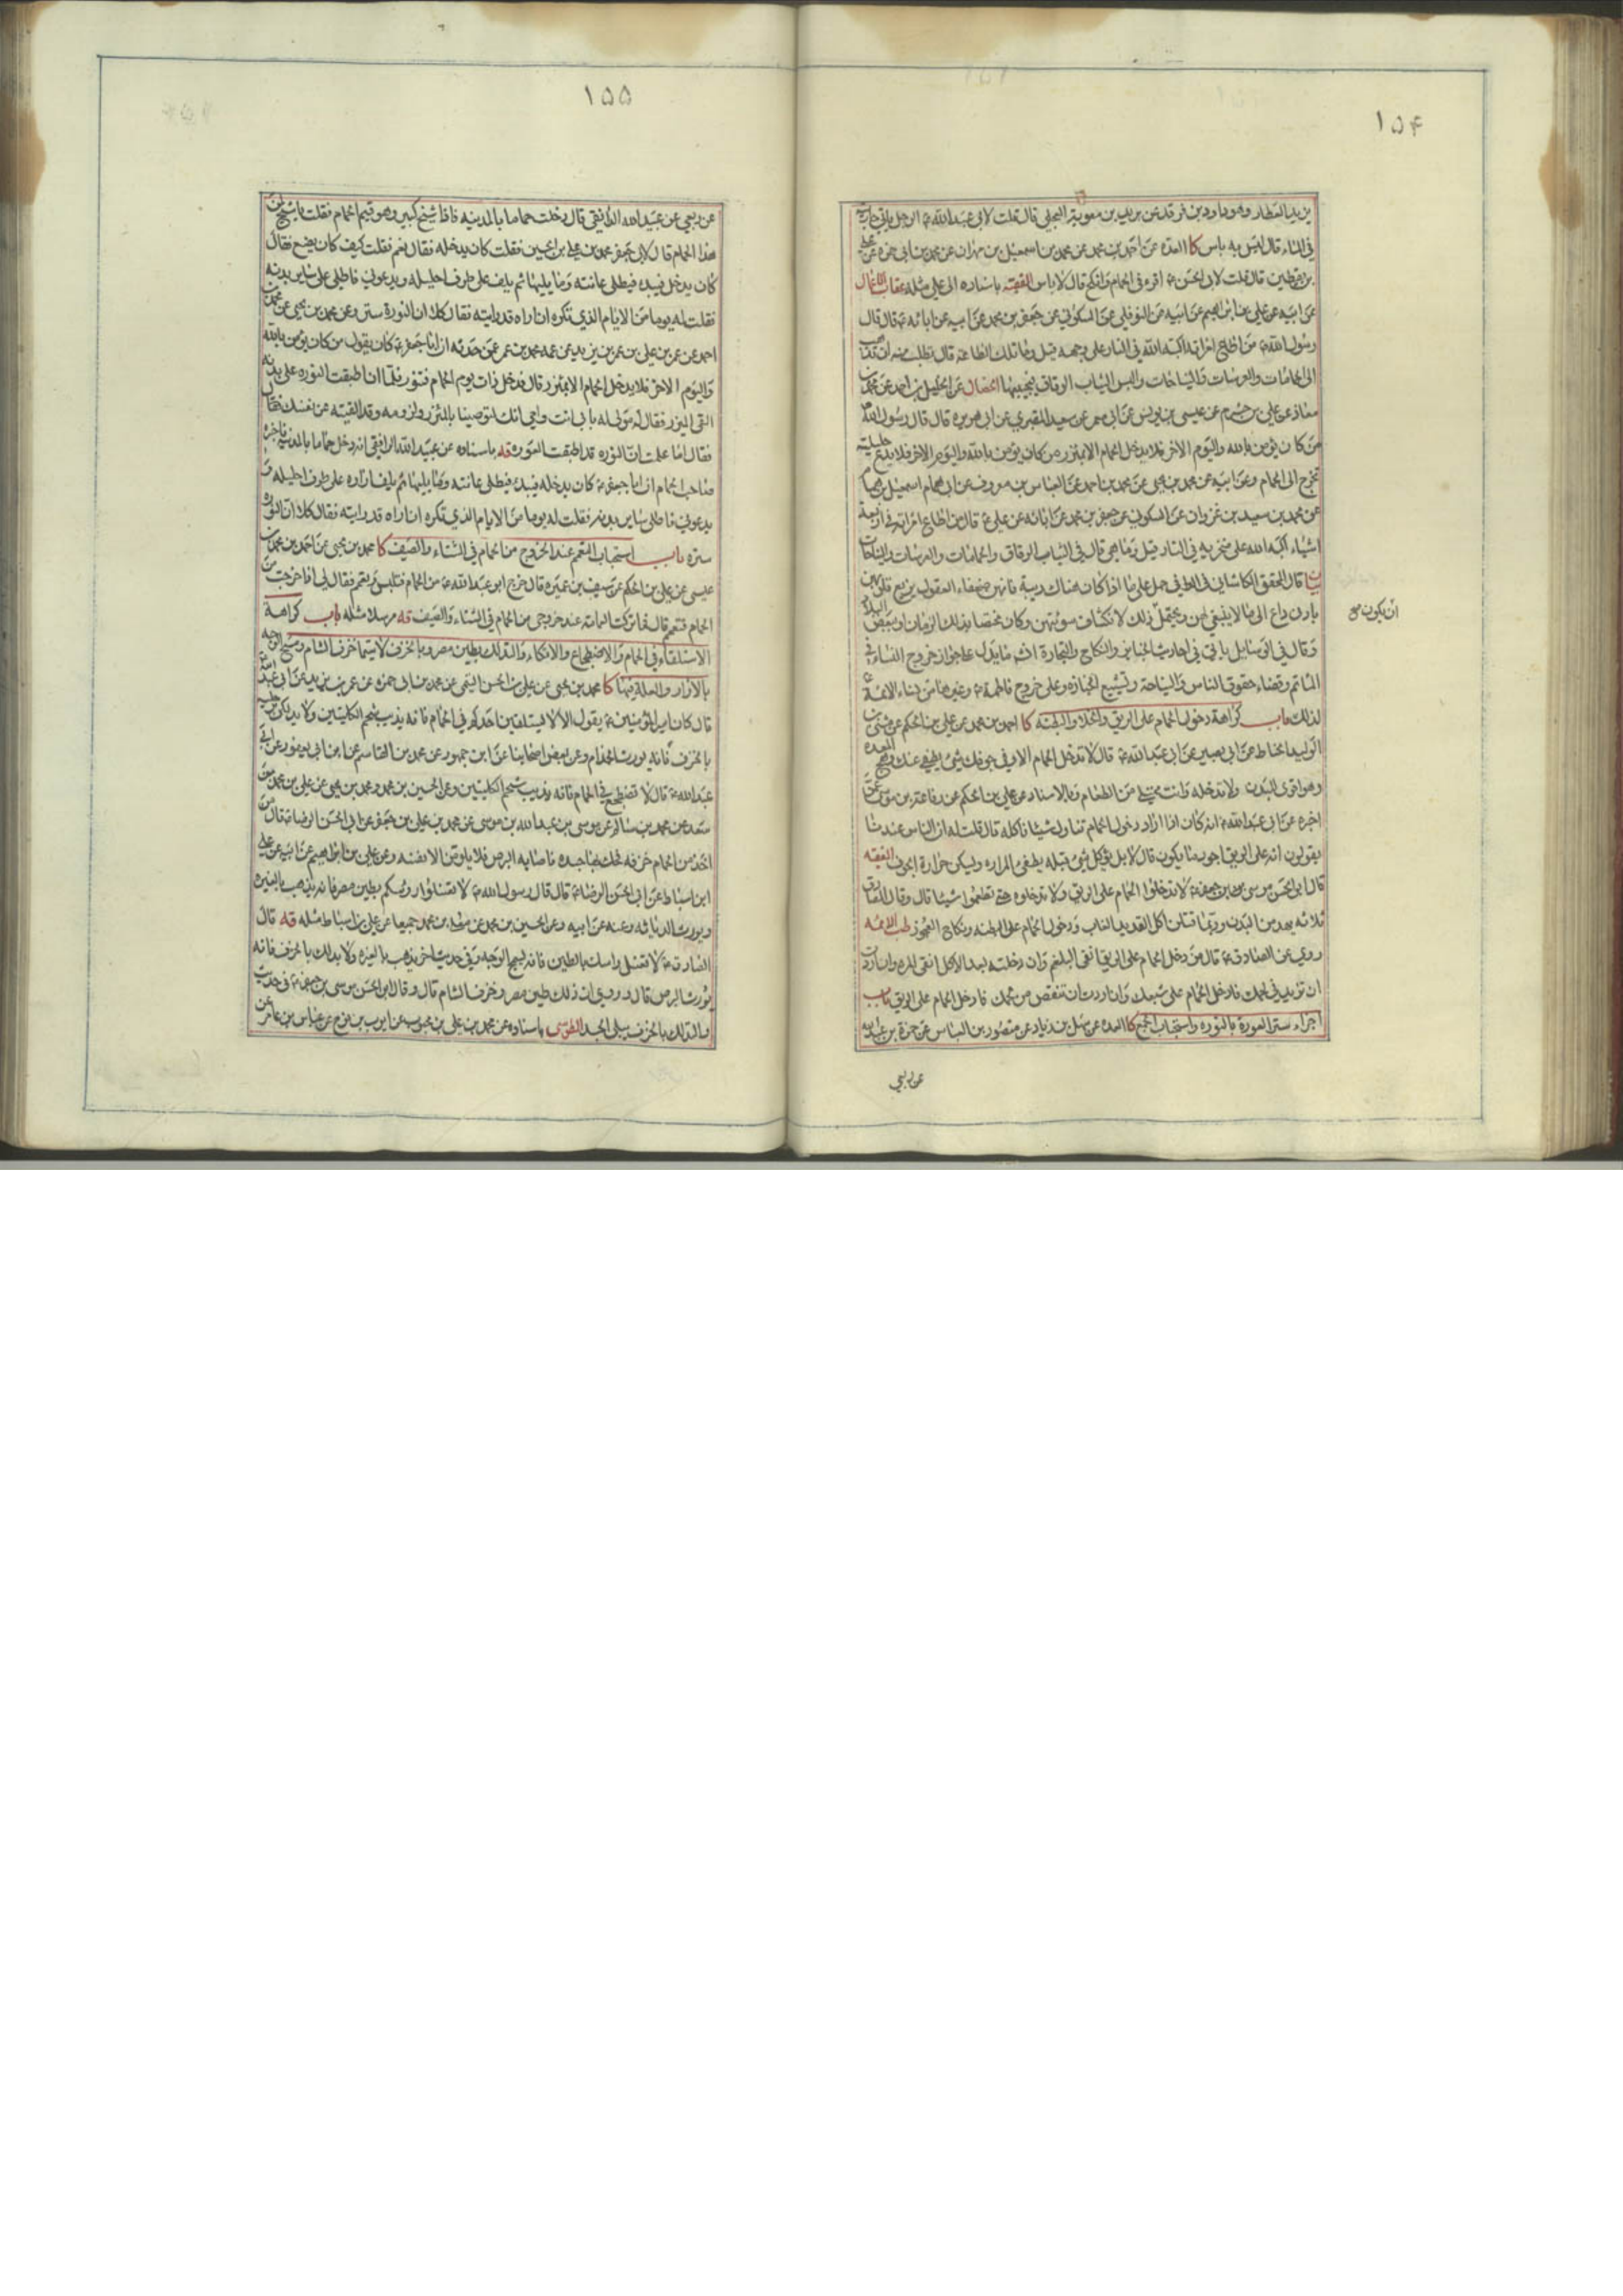 ١٥٤
يزيد العطار وهو داود بن فرقد عن بريد بن معوية البجلي قال قلت لابي عبد الله ع الرجل ياتي جاريته
في الماء قال ليس به باس كا العدة عن احمد بن محمد عن محمد بن اسمعيل بن مهران عن محمد بن ابي حمزة عن علي
بن يقطين قال قلت لابي الحسن ع اقرء في الحمام وانكح قال لا باس الفقيه باسناده الى علي مثله عقاب الاعمال
عن ابيه عن علي بن ابرهيم عن ابيه عن النوفلي عن السكوني عن جعفر بن محمد عن ابيه عن ابائه ع قال قال
رسول الله ص من اطاع امراته اكبه الله في النار على وجهه قيل وما تلك الطاعة قال تطلب منه ان تذهب
الى الحمامات والعرسات والنياحات والبس الثياب الرقاق فيجيبها الخصال عن الخليل بن احمد عن محمد بن
معاذ عن علي بن خشرم عن عيسى بن يونس عن ابي معمر عن سعيد المقبري عن ابي هريرة قال قال رسول الله ص
من كان يؤمن بالله واليوم الاخر فلا يدخل الحمام الا بمئزر ومن كان يؤمن بالله واليوم الاخر فلا يدع حليلته
تخرج الى الحمام وعن ابيه عن محمد بن يحيى عن محمد بن احمد عن العباس بن معروف عن ابي همام اسمعيل بن همام
عن محمد بن سعيد بن غزوان عن السكوني عن جعفر بن محمد عن ابائه عن علي ع قال من اطاع امراته في اربعة
اشياء اكبه الله على منخريه في النار قيل وما هي قال في الثياب الرقاق والحمامات والعرسات والنياحات
قال المحقق الكاشاني في الوافي حمل على ما اذا كان هناك ريبة فانهن ضعفاء العقول يزيغ قلوبهن
بادنى داع الى ما لا ينبغي لهن ويحتمل ذلك لانكشاف سوئتهن وكان مختصا بذلك الزمان او ببعض البلاد
ان يكون صح
وقال في الوسايل ياتي في احاديث الجنايز والنكاح والتجارة انشه ما يدل على جواز خروج النساء في
الماتم وقضاء حقوق الناس والنياحة وتشييع الجنازه وعلى خروج فاطمة ع وغيرها من نساء الائمة ع
لذلك باب كراهة دخول الحمام على الريق والخلاء والبطنة كا احمد بن محمد عن علي بن الحكم عن مثنى بن
الوليد الحناط عن ابي بصير عن ابي عبد الله ع قال لا تدخل الحمام الا وفي جوفك شيئ يطفئ عنك وهج المعده
وهو اقوى للبدن ولا تدخله وانت ممتلي من الطعام وبالاسناد عن علي بن الحكم عن رفاعة بن موسى عمن
اخبره عن ابي عبد الله ع انه كان اذا اراد دخول الحمام تناول شيئا فاكله قال قلت له ان الناس عندنا
يقولون انه على الريق اجود ما يكون قال لا بل يؤكل شيئ قبله يطفئ المراره ويسكن حرارة الجوف الفقيه
قال ابو الحسن موسى بن جعفر ع لا تدخلوا الحمام على الريق ولا تدخلوه حتى تطعموا شيئا قال وقال الصادق ع
ثلاثة يهدمن البدن وربما قتلن اكل القديد الغاب ودخول الحمام على البطنه ونكاح العجوز طب الائمه
روي عن الصادق ع قال من دخل الحمام على الريق انقى البلغم وان دخلته بعد الاكل انقى المره وان اردت
ان تزيد في لحمك فادخل الحمام على شبعك وان اردت ان تنقص من لحمك فادخل الحمام على الريق باب
اجزاء ستر العورة بالنوره واستحباب الجمع كا العده عن سهل بن زياد عن منصور بن العباس عن حمزة بن عبد الله
عن ربعي
١٥٥
عن ربعي عن عبيد الله الدابقي قال دخلت حماما بالمدينه فاذا شيخ كبير وهو قيم الحمام فقلت يا شيخ لمن
هذا الحمام قال لابي جعفر محمد بن علي بن الحسين فقلت كان يدخله فقال نعم فقلت كيف كان يصنع فقال
كان يدخل فيبدء فيطلي عانته وما يليها ثم يلف على طرف احليله ويدعوني فاطلي على ساير بدنه
فقلت له يوما من الايام الذي تكره ان اراه قد رايته فقال كلا ان النورة سترة وعن محمد بن يحيى عن محمد بن
احمد عن عمر بن علي بن عمر بن يزيد عن عمه محمد بن عمر عمن حدثه ان ابا جعفر ع كان يقول من كان يؤمن بالله
واليوم الاخر فلا يدخل الحمام الا بمئزر قال فدخل ذات يوم الحمام فتنور فلما ان اطبقت النوره على بدنه
القى الميزر فقال له مولى له بابي انت وامي انك لتوصينا بالمئزر ولزومه وقد القيته عن نفسك فقال
فقال اما علمت ان النوره قد اطبقت العوره قه باسناده عن عبيد الله الرافقي انه دخل حماما بالمدينه فاخبره
صاحب الحمام ان ابا جعفر ع كان يدخله فيبدء فيطلي عانته وما يليها ثم يلف ازاره على طرف احليله و
يدعوني فاطلي ساير بدنه فقلت له يوما من الايام الذي تكره ان اراه قد رايته فقال كلا ان النوره
ستره باب استحباب التعمم عند الخروج من الحمام في الشتاء والصيف كا محمد بن يحيى عن احمد بن محمد بن
عيسى عن علي بن الحكم عن سيف بن عميره قال خرج ابو عبد الله ع من الحمام فتلبس وتعمم فقال لي اذا خرجت من
الحمام فتعمم قال فما تركت العمامة عند خروجي من الحمام في الشتاء والصيف قه مرسلا مثله باب كراهة
الاستلقاء في الحمام والاضطجاع والاتكاء والتدلك بطين مصر وبالخزف لا سيما خزف الشام ومسح الوجه
بالازار والعلة فيها كا محمد بن يحيى عن علي بن الحسن التيمي عن محمد بن ابي حمزه عن عمر بن يزيد عن ابي عبد الله ع
قال كان امير المؤمنين ع يقول الا لا يستلقين احدكم في الحمام فانه يذيب شحم الكليتين ولا يدلكن رجليه
بالخزف فانه يورث الجذام وعن بعض اصحابنا عن ابن جمهور عن محمد بن القاسم عن ابن ابي يعفور عن ابي
عبد الله ع قال لا تضطجع في الحمام فانه يذيب شحم الكليتين وعن الحسين بن محمد ومحمد بن يحيى عن علي بن محمد بن
سعد عن محمد بن سالم عن موسى بن عبد الله بن موسى عن محمد بن علي بن جعفر عن ابي الحسن الرضا ع قال من
اخذ من الحمام خزفه فحك بها جسده فاصابه البرص فلا يلومن الا نفسه وعن علي بن ابراهيم عن ابيه عن علي
ابن اسباط عن ابي الحسن الرضا ع قال قال رسول الله ص لا تغسلوا روسكم بطين مصر فانه يذهب بالغيره
ويورث الدياثه وعنه عن ابيه وعن الحسين بن محمد عن معلى بن محمد جميعا عن علي بن اسباط مثله قه قال
الصادق ع لا تغسل راسك بالطين فانه يسمج الوجه وفي حديث اخر يذهب بالغيره ولا يدلك بالخزف فانه
يورث البرص قال وروي ان ذلك طين مصر وخزف الشام قال وقال ابو الحسن موسى بن جعفر ع في حديث
والتدلك بالخزف يبلي الجسد الطوسي باسناده عن محمد بن علي بن محبوب عن ايوب بن نوح عن عباس بن عامر عن